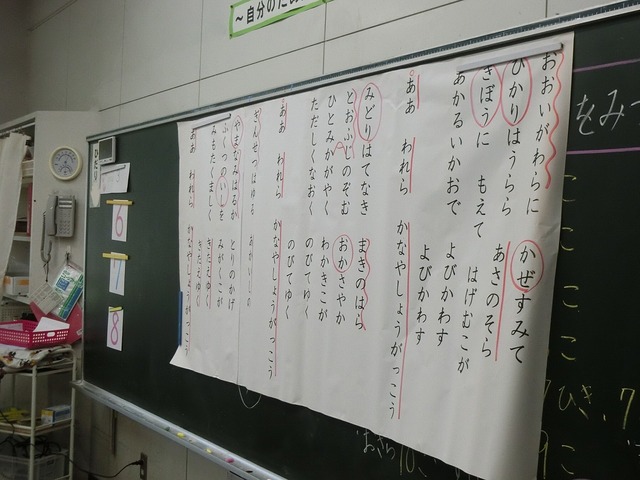 ～自分のため
おおいがわらに　かぜすみて
ひかりはうらら　あさのそら
きぼうに　もえて　はげむこが
あかるいかおで　よびかわす
よびかわす
ああ　われら　かなやしょうがっこう
みどりはてなき　まきのはら
とおふじのぞむ　おかさやか
ひとみかがやく　わかきこが
ただしくなおく　のびてゆく
のびてゆく
ああ　われら　かなやしょうがっこう
ぎんせつはゆる
やまなみはるか　とりのかげ
いを　みがくこが
みもたくましく　きたえゆく
きたえゆく
ああ　われら　かなやしょうがっこう
をみつ
こ
こ
こ
こ
ひき、7
こ
6
7
8